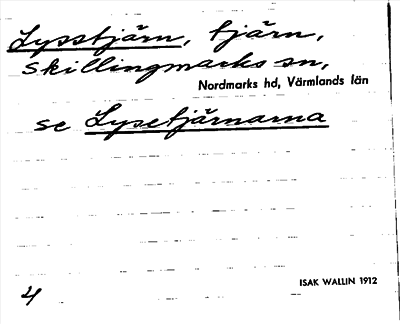 Lysstjärn, tjärn,
Skillingmarks sn,
Nordmarks hd, Värmlands län
se Lysetjärnarna
ISAK WALLIN 1912
4